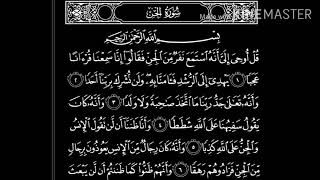 Made With
KINEMASTER
سُورَةُ الجِنِّ
بِسْمِ اللَّهِ الرَّحْمَٰنِ الرَّحِيمِ
قُلْ أُوحِيَ إِلَيَّ أَنَّهُ ٱسْتَمَعَ نَفَرٌ مِّنَ ٱلْجِنِّ فَقَالُوٓا۟ إِنَّا سَمِعْنَا قُرْءَانًا
عَجَبًا ١ يَهْدِىٓ إِلَى ٱلرُّشْدِ فَـَٔامَنَّا بِهِۦ وَلَن نُّشْرِكَ بِرَبِّنَآ أَحَدًا ٢
وَأَنَّهُۥ تَعَـٰلَىٰ جَدُّ رَبِّنَا مَا ٱتَّخَذَ صَـٰحِبَةً وَلَا وَلَدًا ٣ وَأَنَّهُۥ كَانَ
يَقُولُ سَفِيهُنَا عَلَى ٱللَّهِ شَطَطًا ٤ وَأَنَّا ظَنَنَّآ أَن لَّن تَقُولَ ٱلْإِنسُ
وَٱلْجِنُّ عَلَى ٱللَّهِ كَذِبًا ٥ وَأَنَّهُۥ كَانَ رِجَالٌ مِّنَ ٱلْإِنسِ يَعُوذُونَ بِرِجَالٍ
مِّنَ ٱلْجِنِّ فَزَادُوهُمْ رَهَقًا ٦ وَأَنَّهُمْ ظَنُّوا۟ كَمَا ظَنَنتُمْ أَن لَّن يَبْعَثَ